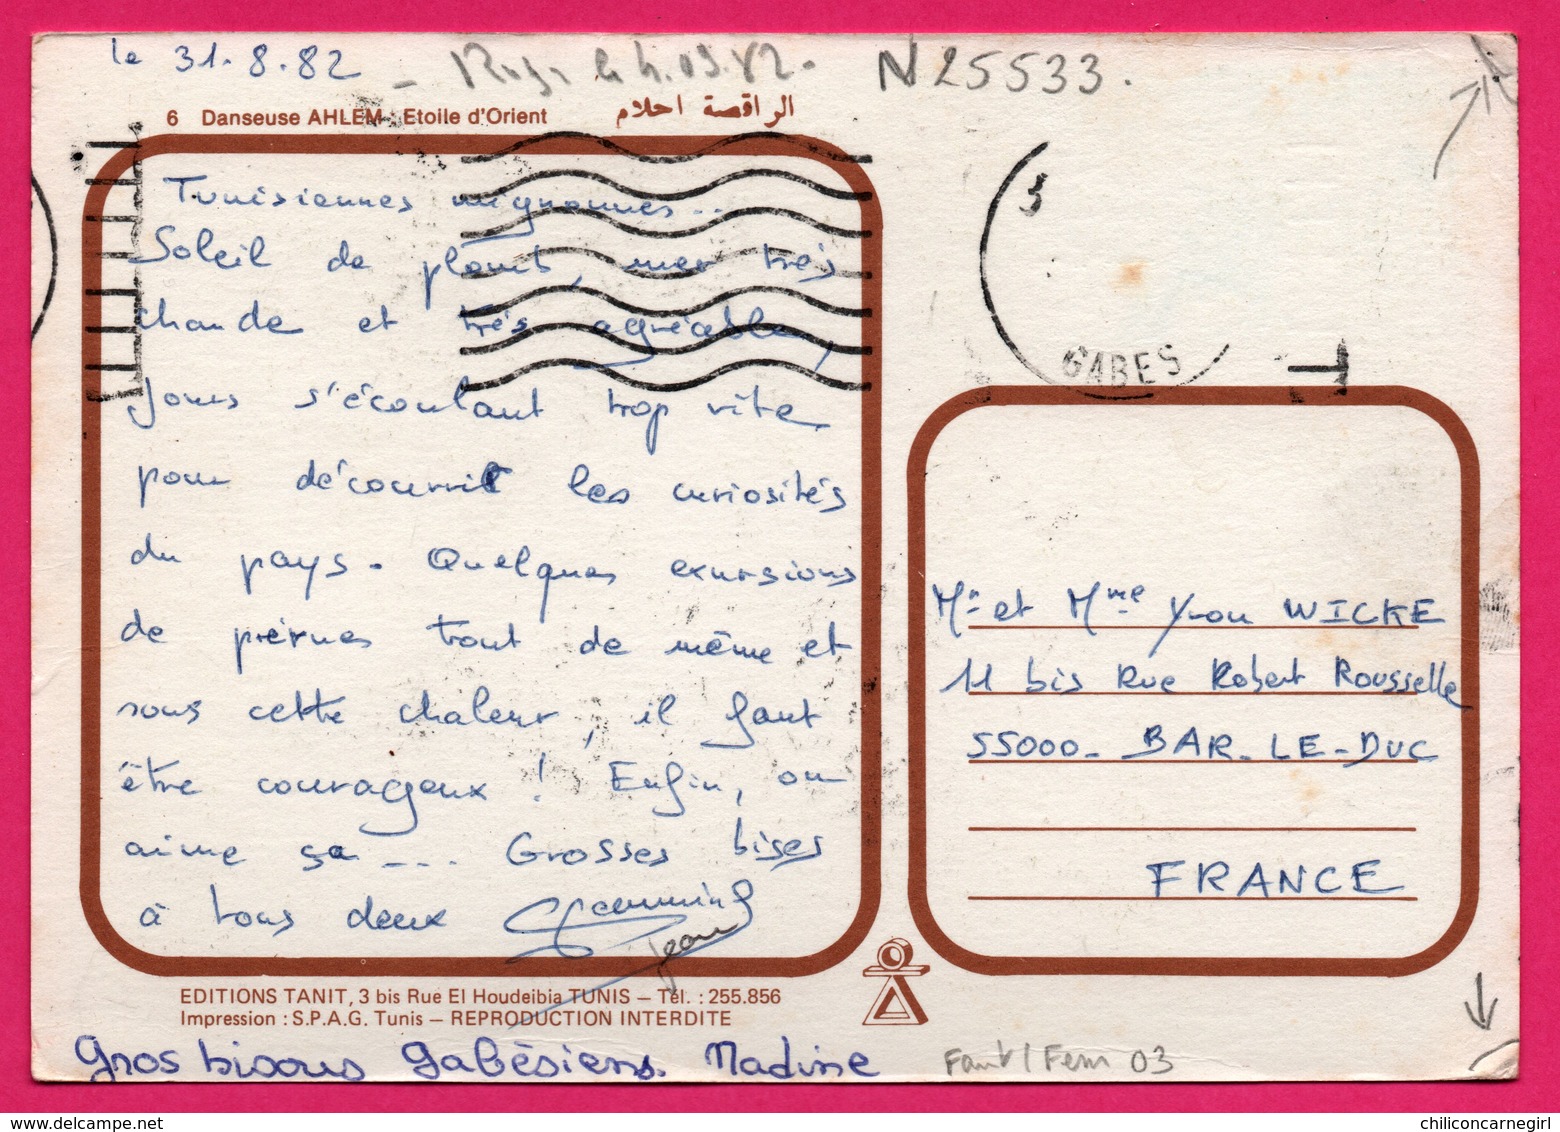 le 31.8.82
N 25533.
6 Danseuse AHLEM : Etoile d'Orient
الراقصة احلام
Tunisiennes mignonnes...
Soleil de plomb, mer très
chaude et très agréable,
jours s'écoulant trop vite
pour découvrir les curiosités
du pays. Quelques excursions
de prévues tout de même et
sous cette chaleur, il faut
être courageux ! Enfin, on
aime ça .... Grosses bises
à tous deux
Jean
GABES
T
Mr et Mme Yvon WICKE
11 bis Rue Robert Rousselle
55000 - BAR-LE-DUC
FRANCE
EDITIONS TANIT, 3 bis Rue El Houdeibia TUNIS – Tél. : 255.856
Impression : S.P.A.G. Tunis – REPRODUCTION INTERDITE
Gros bisous gabésiens. Nadine
03
chiliconcarnegirl